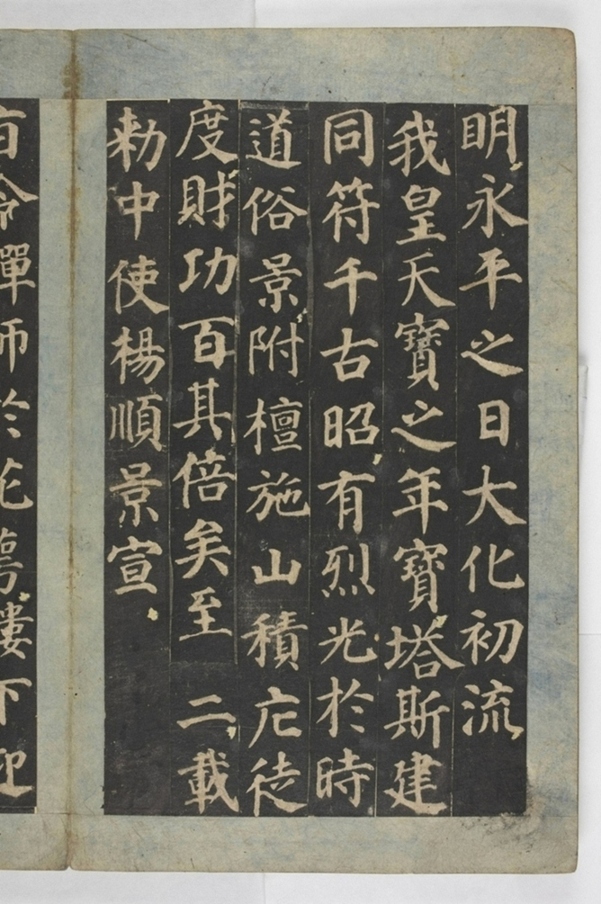 明永平之日大化初流
我皇天寶之年寶塔斯建
同符千古昭有烈光於時
道俗景附檀施山積庀徒
度財功百其倍矣至 二載
勅中使楊順景宣
旨令禪師於花萼樓下迎